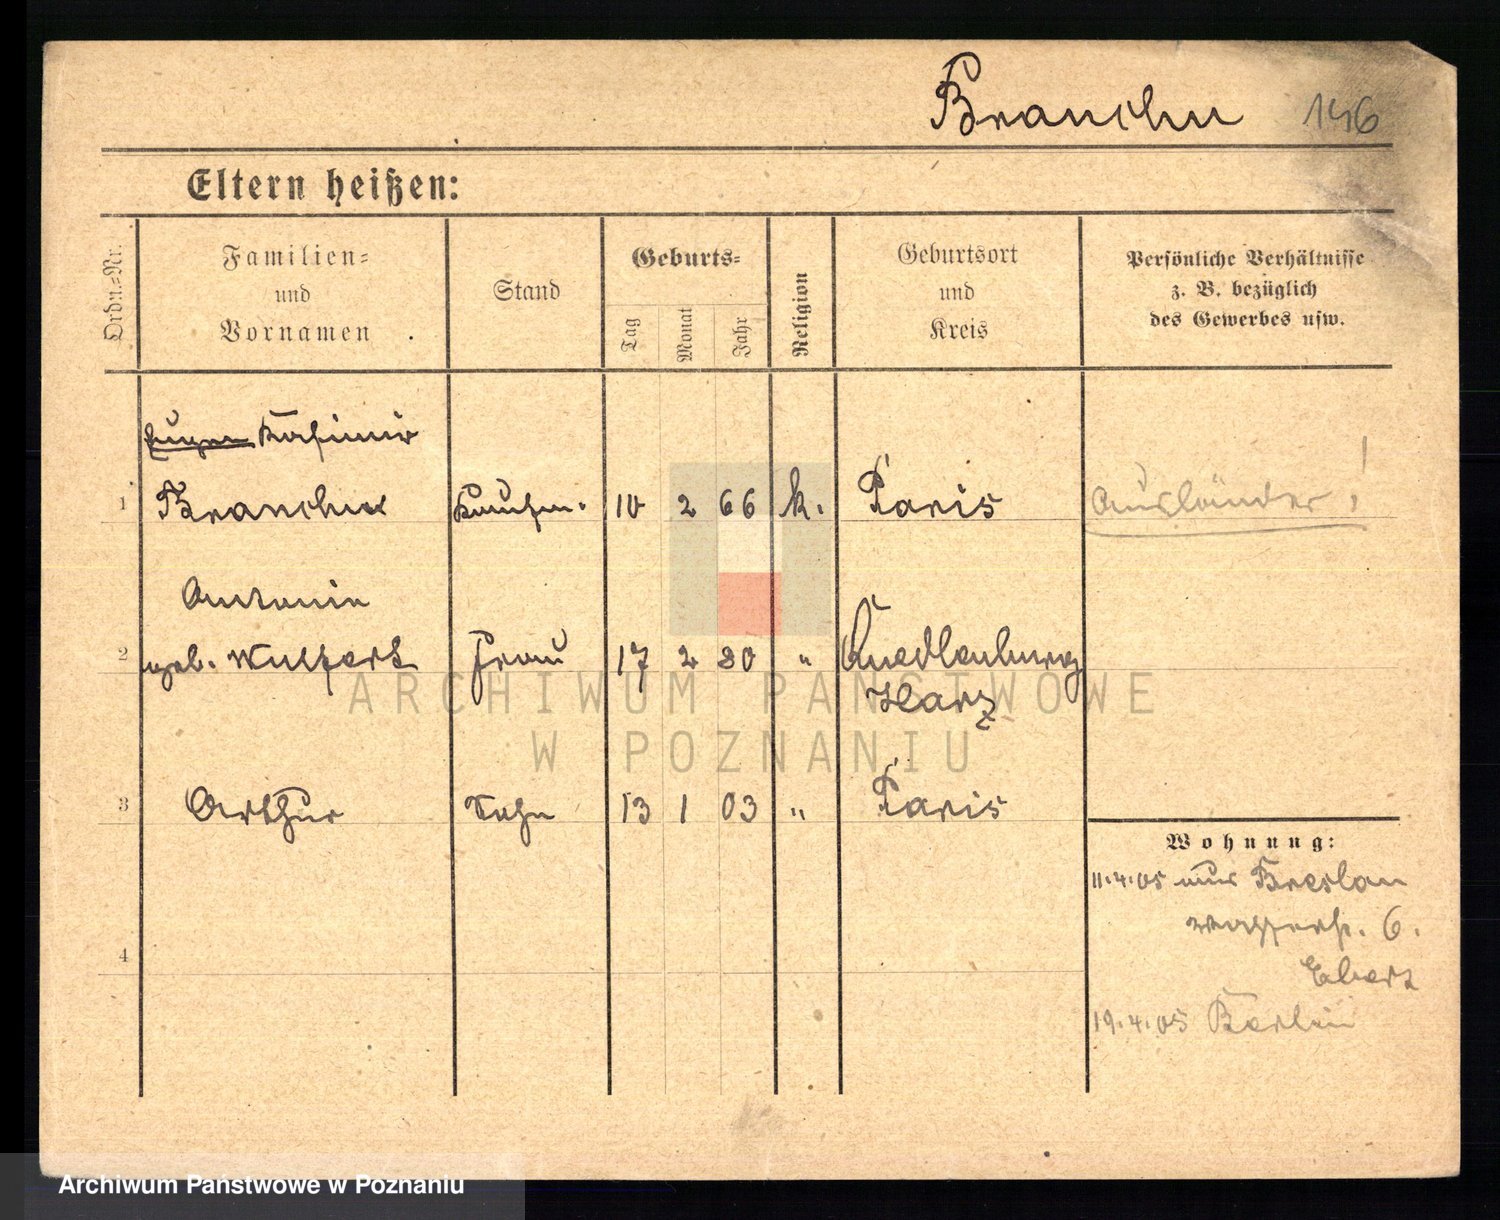 Branchu 146
Eltern heißen:
Ordn.=Nr.
Familien=
und
Vornamen
Stand
Geburts=
Tag
Monat
Jahr
Religion
Geburtsort
und
Kreis
Persönliche Verhältnisse
z. B. bezüglich
des Gewerbes usw.
Eugen Kasimir
1 Branchu Kaufm. 10 2 66 k. Paris Ausländer!
Antonie
2 geb. Wulfert Frau 17 2 80 " Quedlenburg
Harz
3 Arthur Sohn 13 1 03 " Paris
Wohnung:
11.4.05 aus Breslau
6.
Ebert
4
19.4.05 Berlin
ARCHIWUM PAŃSTWOWE
W POZNANIU
Archiwum Państwowe w Poznaniu